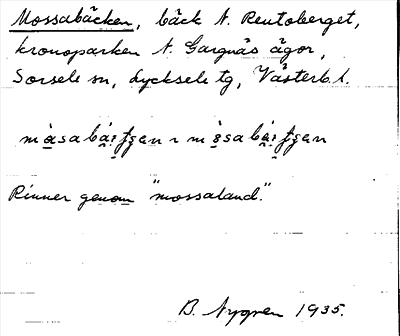 Mossabäcken, bäck N. Rentoberget,
kronoparken N. Gargnäs ägor,
Sorsele sn, Lycksele tg, Västerb. l.
Rinner genom "mossaland".
B. Nygren 1935.